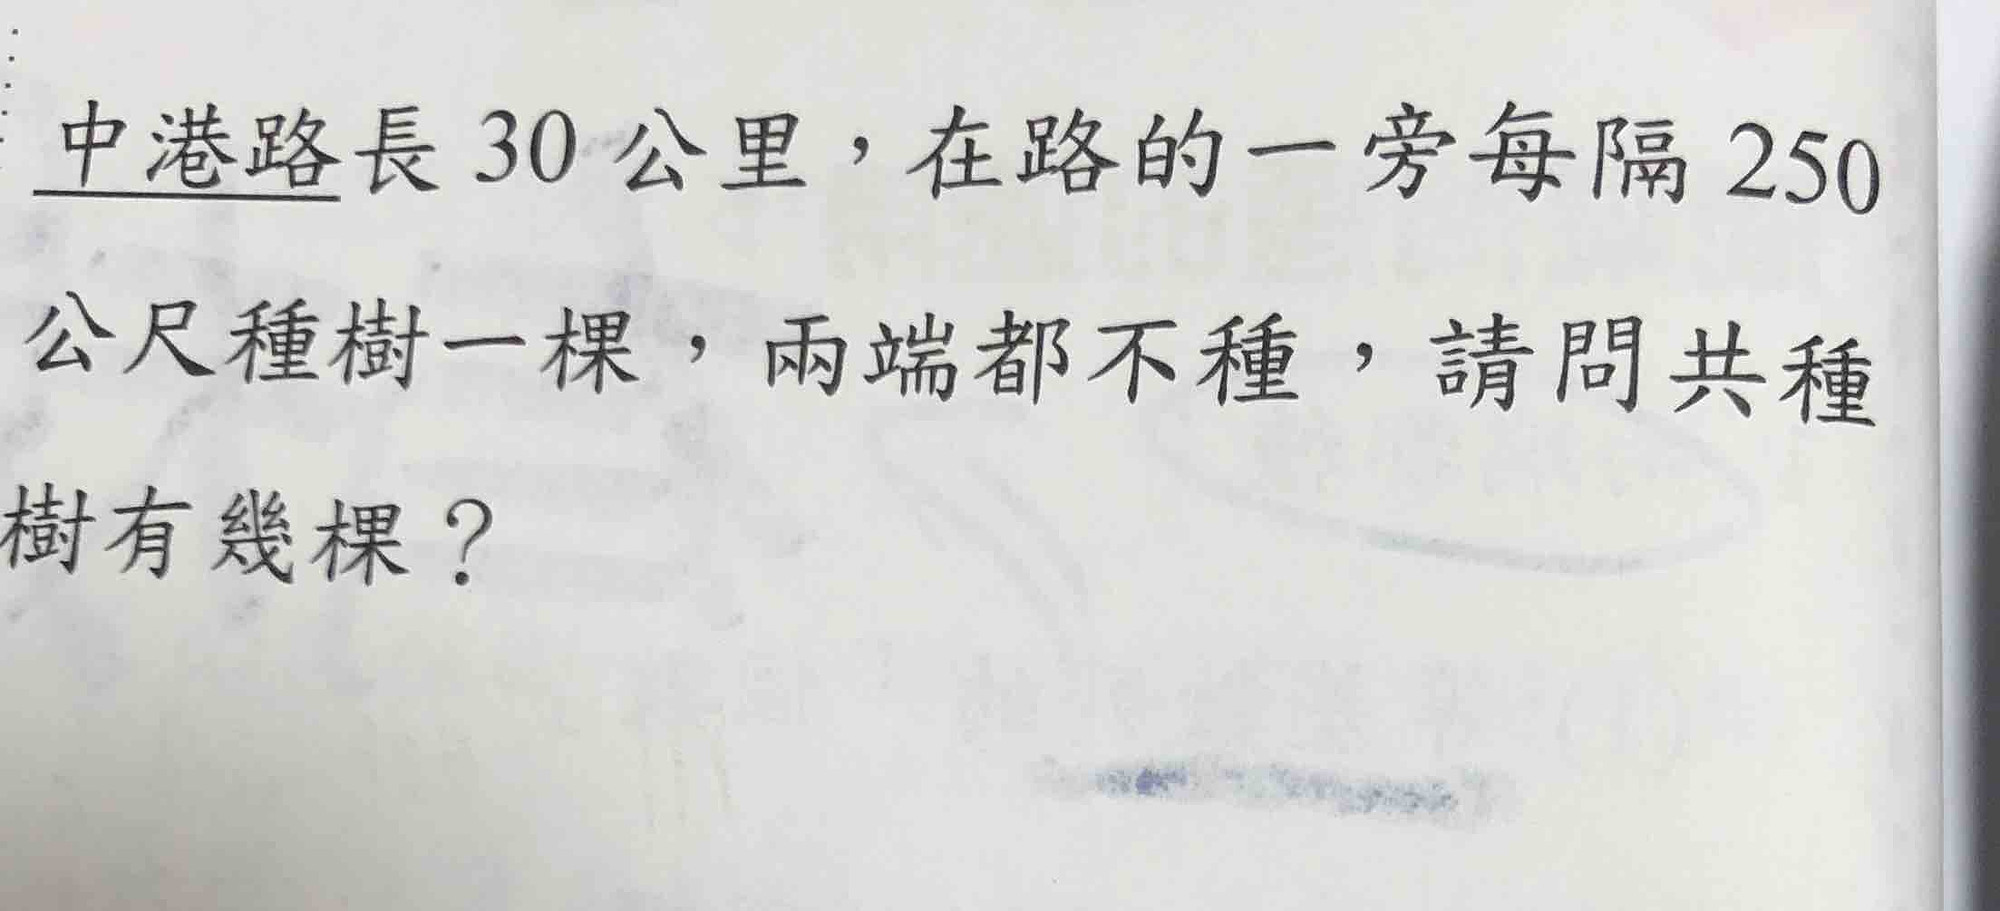 中港路長 30 公里，在路的一旁每隔 250
公尺種樹一棵，兩端都不種，請問共種
樹有幾棵？